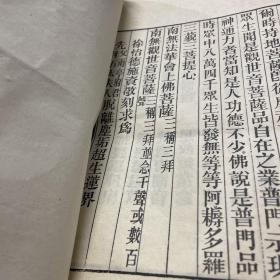 爾時持地菩薩即從座
眾生聞是觀世音菩薩品自在之業普門示現
神通力者當知是人功德不少佛說是普門品
時眾中八萬四千眾生皆發無等等阿耨多羅
三藐三菩提心
南無法華會上佛菩薩三稱三拜
南無觀世音菩薩三稱三拜並念千聲或數百
聲
徐恰德施資敬刻求為
先
脫離塵垢超生蓮界